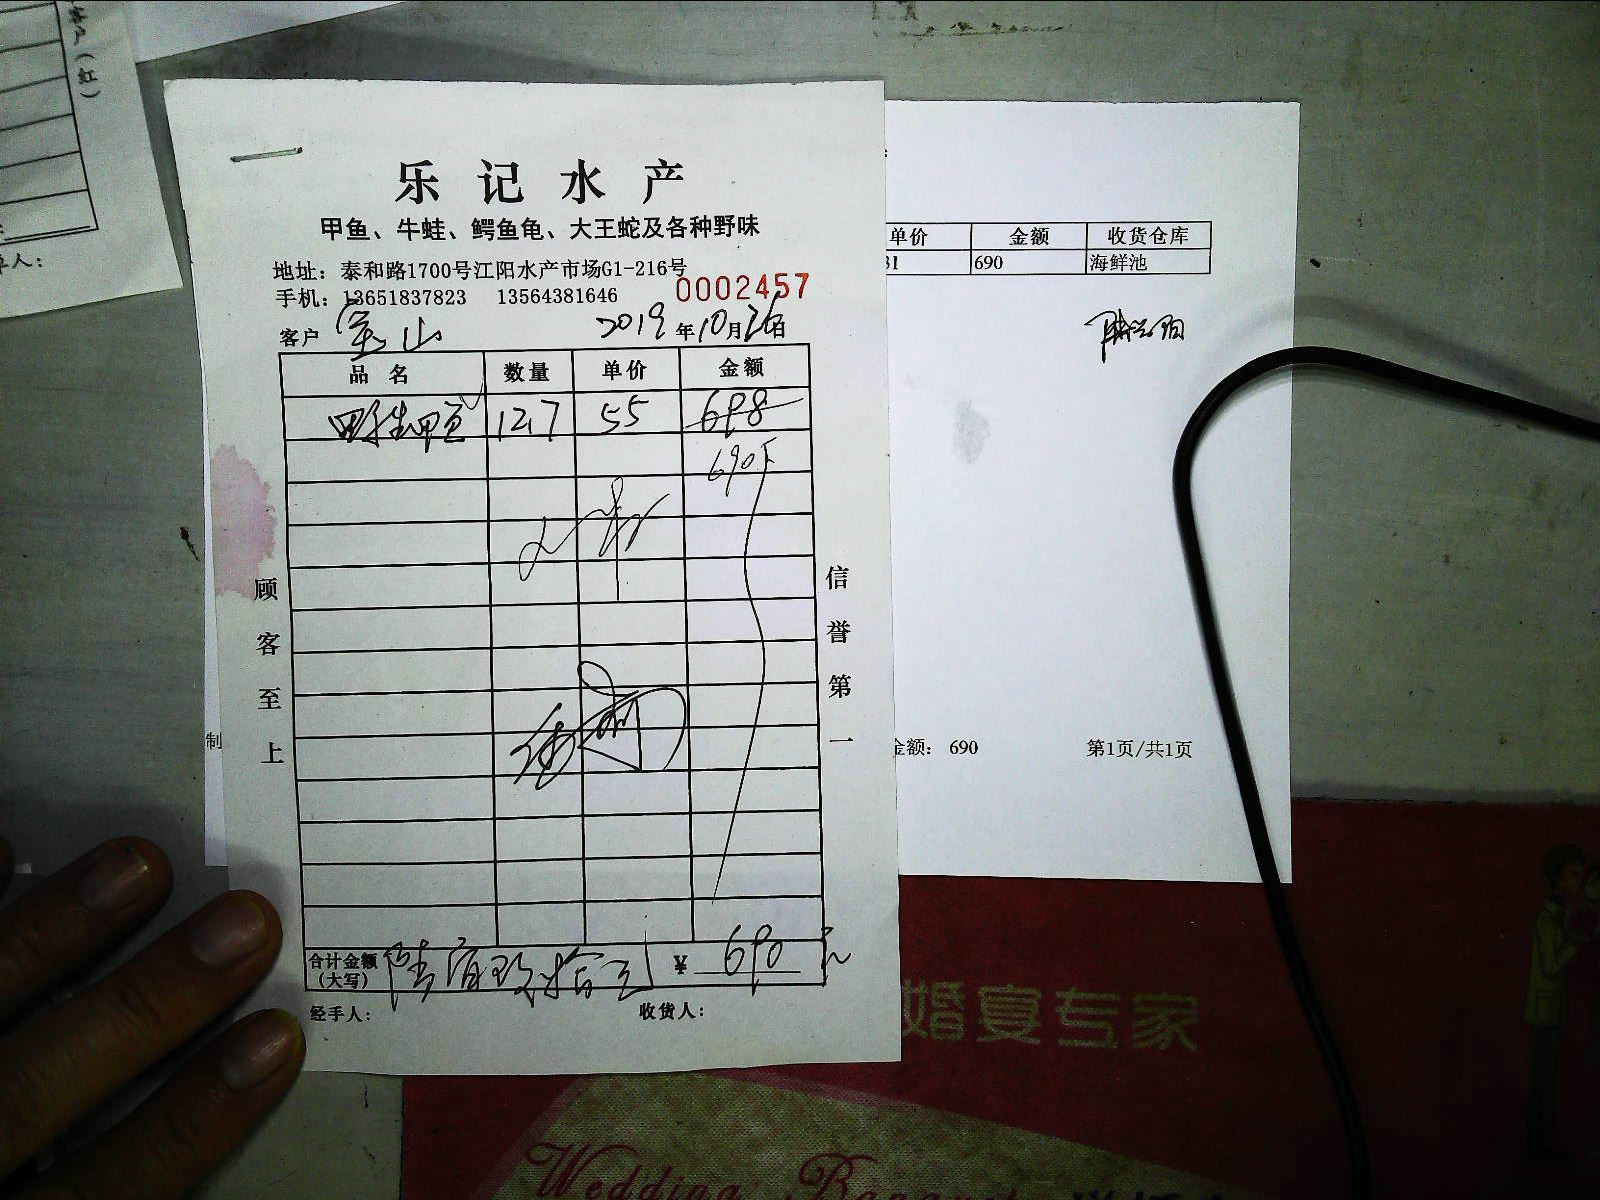 客户（红）
单人：
乐记水产
甲鱼、牛蛙、鳄鱼龟、大王蛇及各种野味
地址：泰和路1700号江阳水产市场G1-216号
手机：13651837823 13564381646
0002457
客户 宝山 2019年10月26日
品名 数量 单价 金额
野生甲鱼 12.7 55 698
690元
顾客至上
信誉第一
合计金额（大写） 陆佰玖拾元 ¥ 690元
经手人： 收货人：
单价 金额 收货仓库
31 690 海鲜池
制
金额： 690 第1页/共1页
婚宴专家
Wedding Banquet